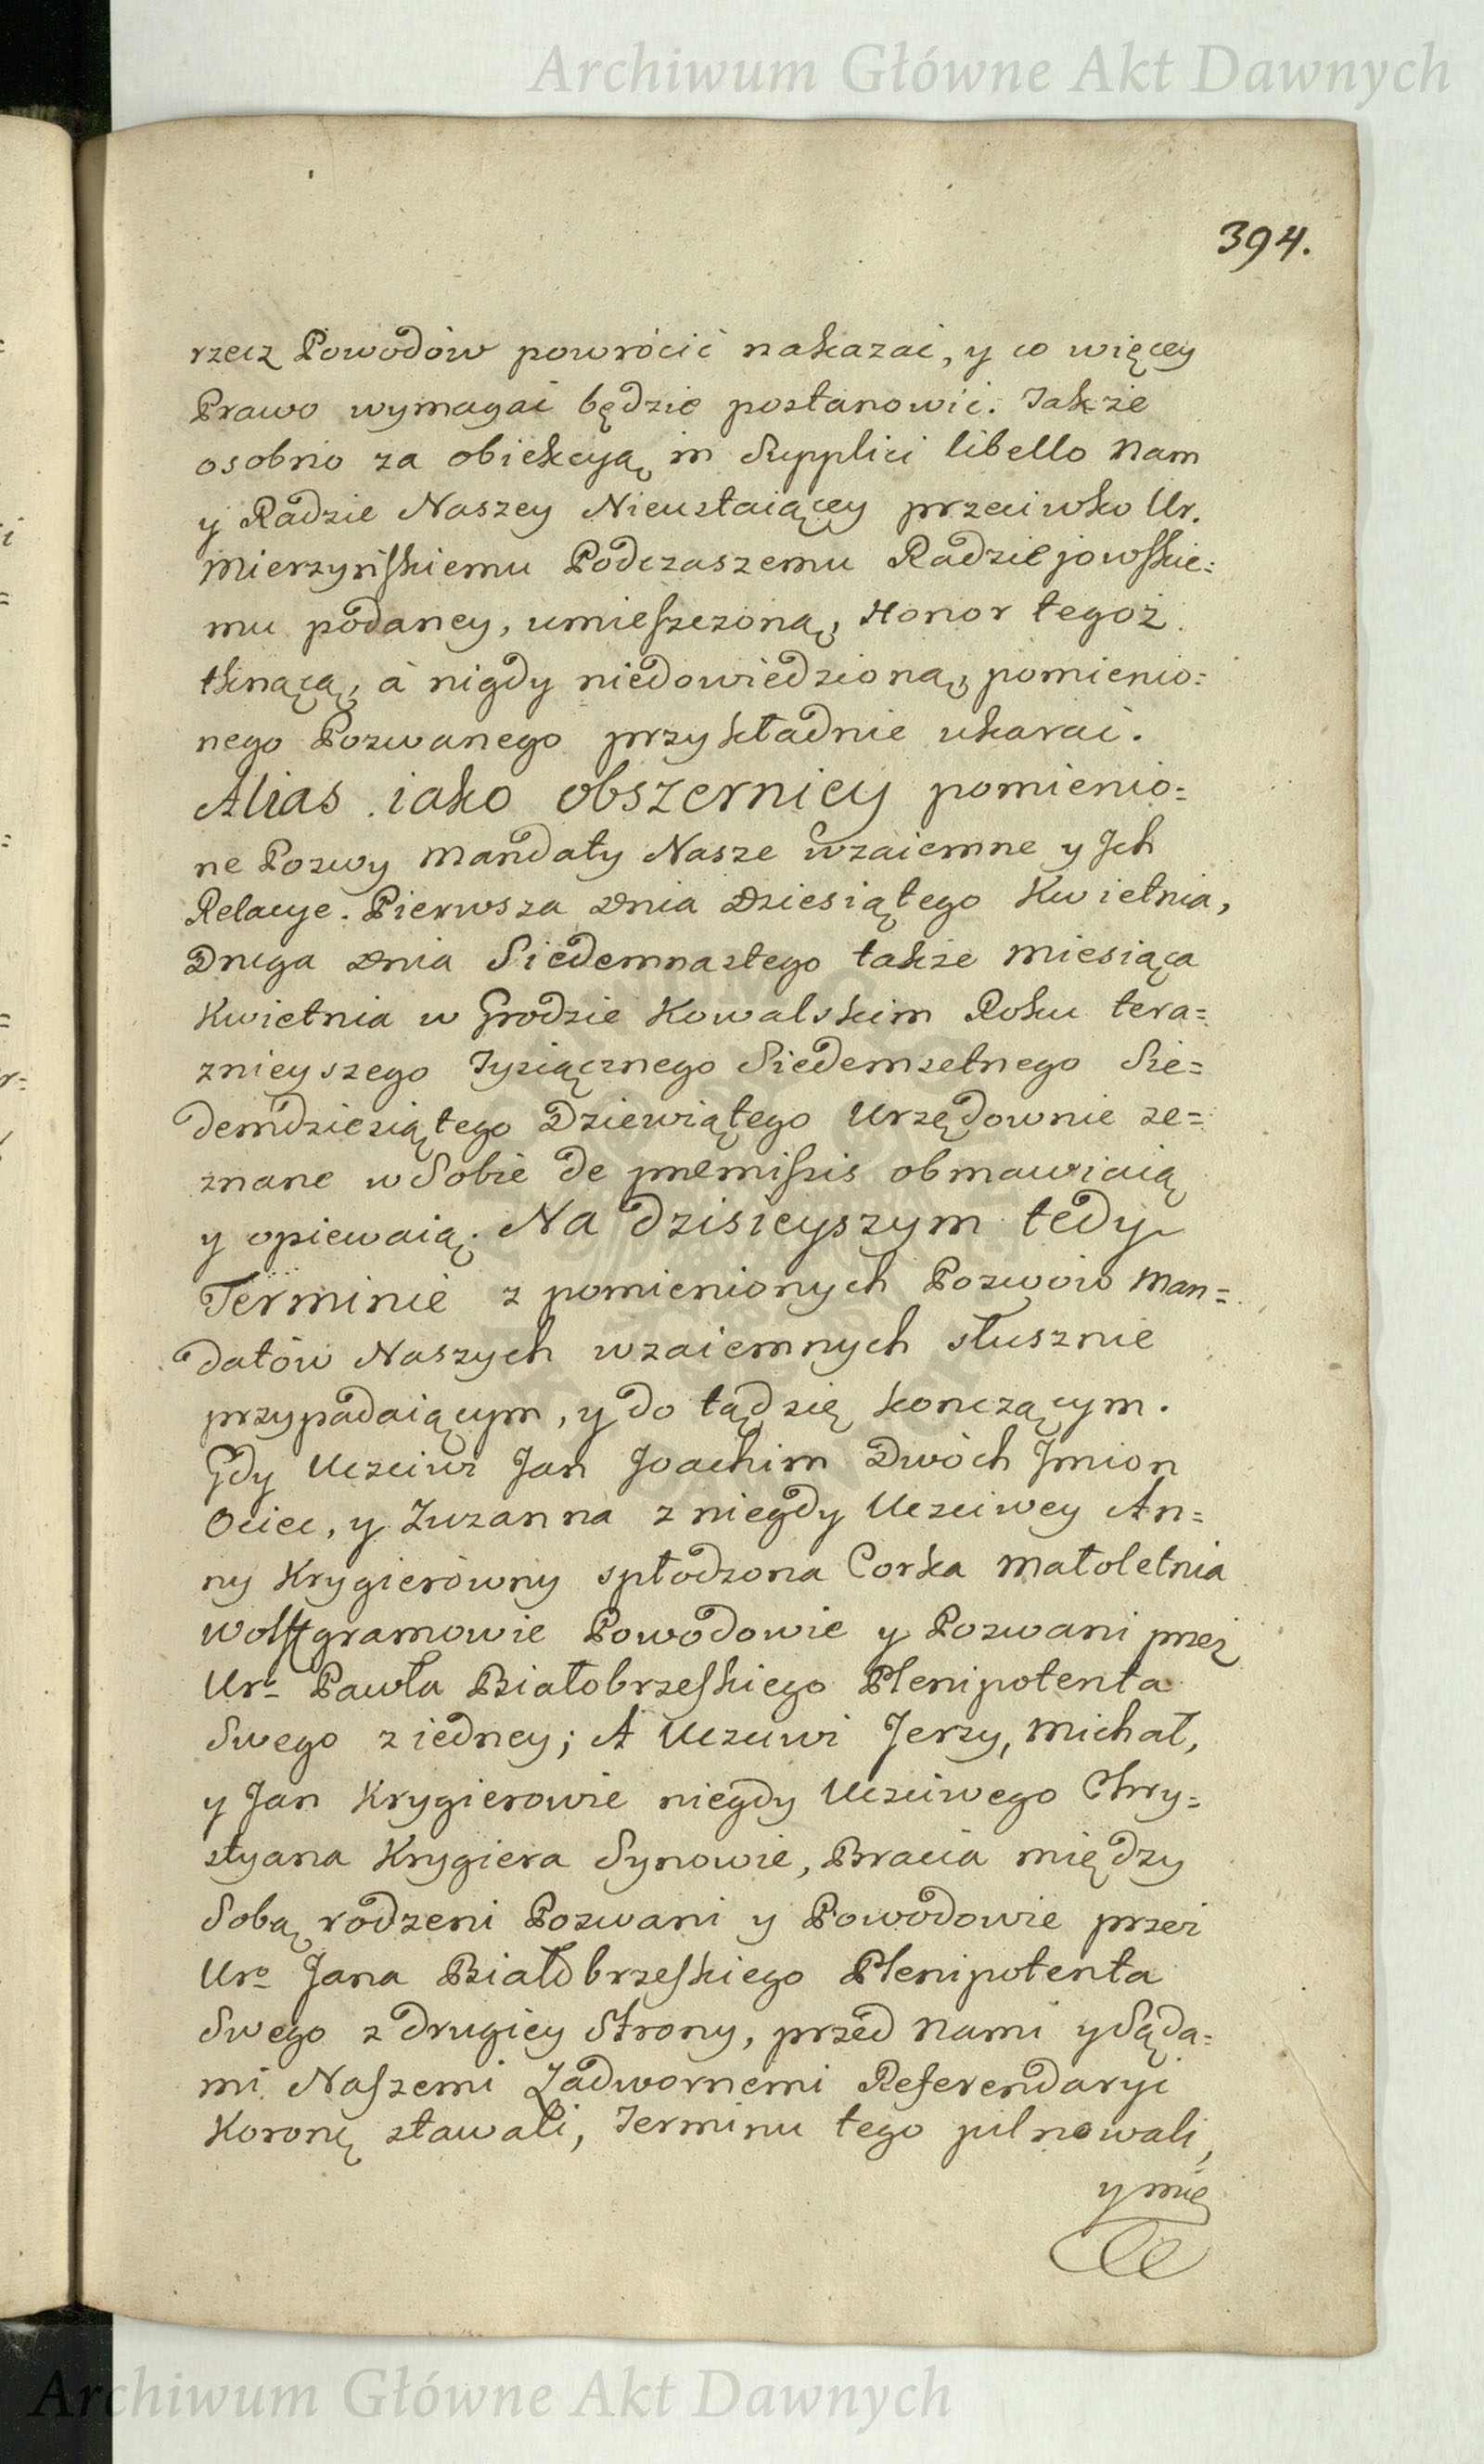 Archiwum Główne Akt Dawnych
394.
rzecz Powodów powrócić nakazać, y co więcey
Prawo wymagać będzie postanowić. Także
osobno za obiekcyą in Supplici libello Nam
y Radzie Naszey Nieustaiącey przeciwko Ur.
Mierzyńskiemu Podczaszemu Radziejowskie=
mu podaney, umieszczoną, Honor tegoż
tknącą, à nigdy niedowiedzioną, pomienio=
nego Pozwanego przykładnie ukarać.
Alias iako obszerniey pomienio=
ne Pozwy Mandaty Nasze wzaiemne y Ich
Relacye. Pierwsza Dnia Dziesiątego Kwietnia,
Druga Dnia Siedemnastego także Miesiąca
Kwietnia w Grodzie Kowalskim Roku tera=
znieyszego Tysiącznego Siedemsetnego Sie=
demdziesiątego Dziewiątego Urzędownie ze=
znane w Sobie de præmissis obmawiaią
y opiewaią. Na dzisieyszym tedy
Terminie z pomienionych Pozwów Man=
datów Naszych wzaiemnych słusznie
przypadaiącym, y do tąd się konczącym.
Gdy Uczciwi Jan Joachim Dwóch Imion
Ociec, y Zuzanna z niegdy Uczciwey An=
ny Krygierówny spłodzona Corka Małoletnia
Wolffgramowie Powodowie y Pozwani przez
Uro Pawła Białobrzeskiego Plenipotenta
Swego z iedney; A Uczciwi Jerzy, Michał,
y Jan Krygierowie niegdy Uczciwego Chry=
styana Krygiera Synowie, Bracia między
Sobą rodzeni Pozwani y Powodowie przez
Uro Jana Białobrzeskiego Plenipotenta
Swego z drugiey Strony, przed Nami y Sąda=
mi Naszemi Zadwornemi Referendaryi
Koronę stawali, Terminu tego pilnowali,
y mię
Archiwum Główne Akt Dawnych